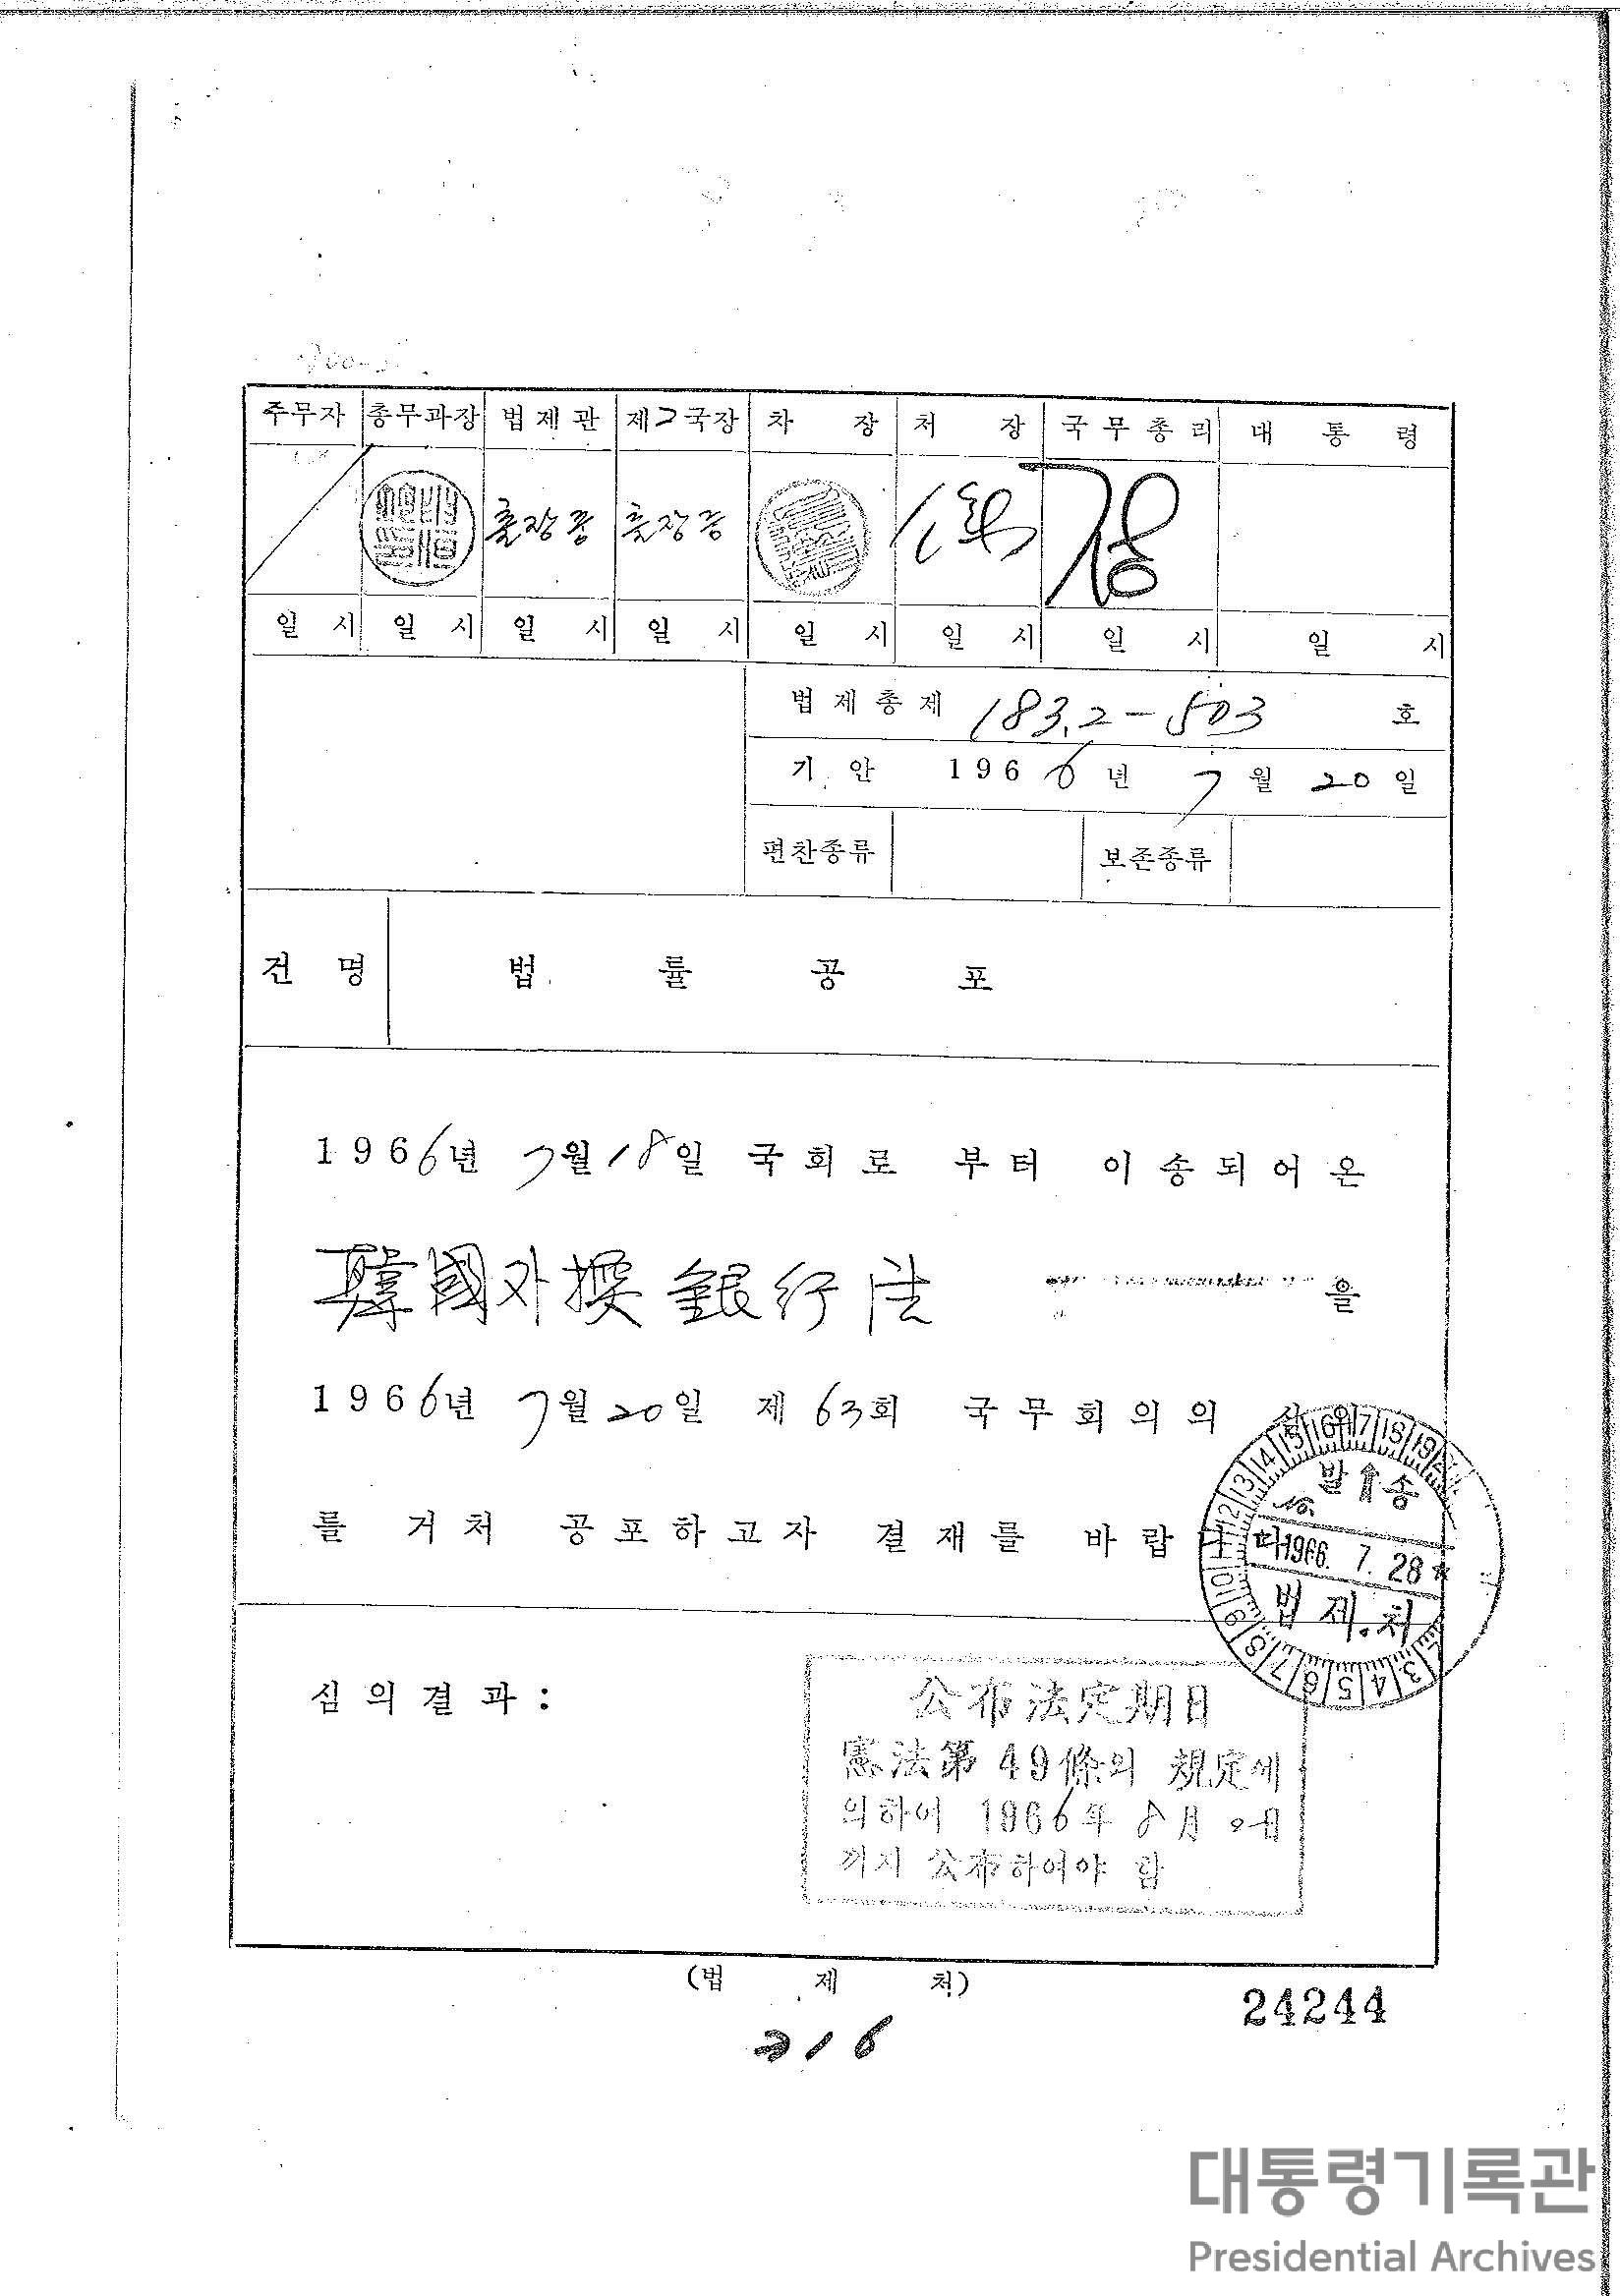 주무자 총무과장 법제관 제2국장 차 장 처 장 국무총리 대 통 령
출장중 출장중
일 시 일 시 일 시 일 시 일 시 일 시 일 시 일 시
법제총제 183.2-503 호
기 안 1966년 7월 20일
편찬종류 보존종류
건 명 법 률 공 포
1966년 7월 18일 국회로 부터 이송되어 온
韓國外換銀行法 을
1966년 7월 20일 제 63회 국무회의의 심의
를 거처 공포하고자 결재를 바랍니다
발송
No.
1966. 7. 28
법제처
심의결과:
公布法定期日
憲法第 49條의 規定에
의하여 1966年 8月 2日
까지 公布하여야 함
(법 제 처)
24244
316
대통령기록관
Presidential Archives